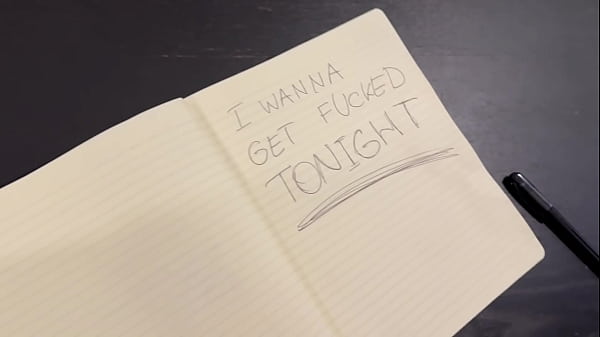 I WANNA
GET FUCKED
TONIGHT